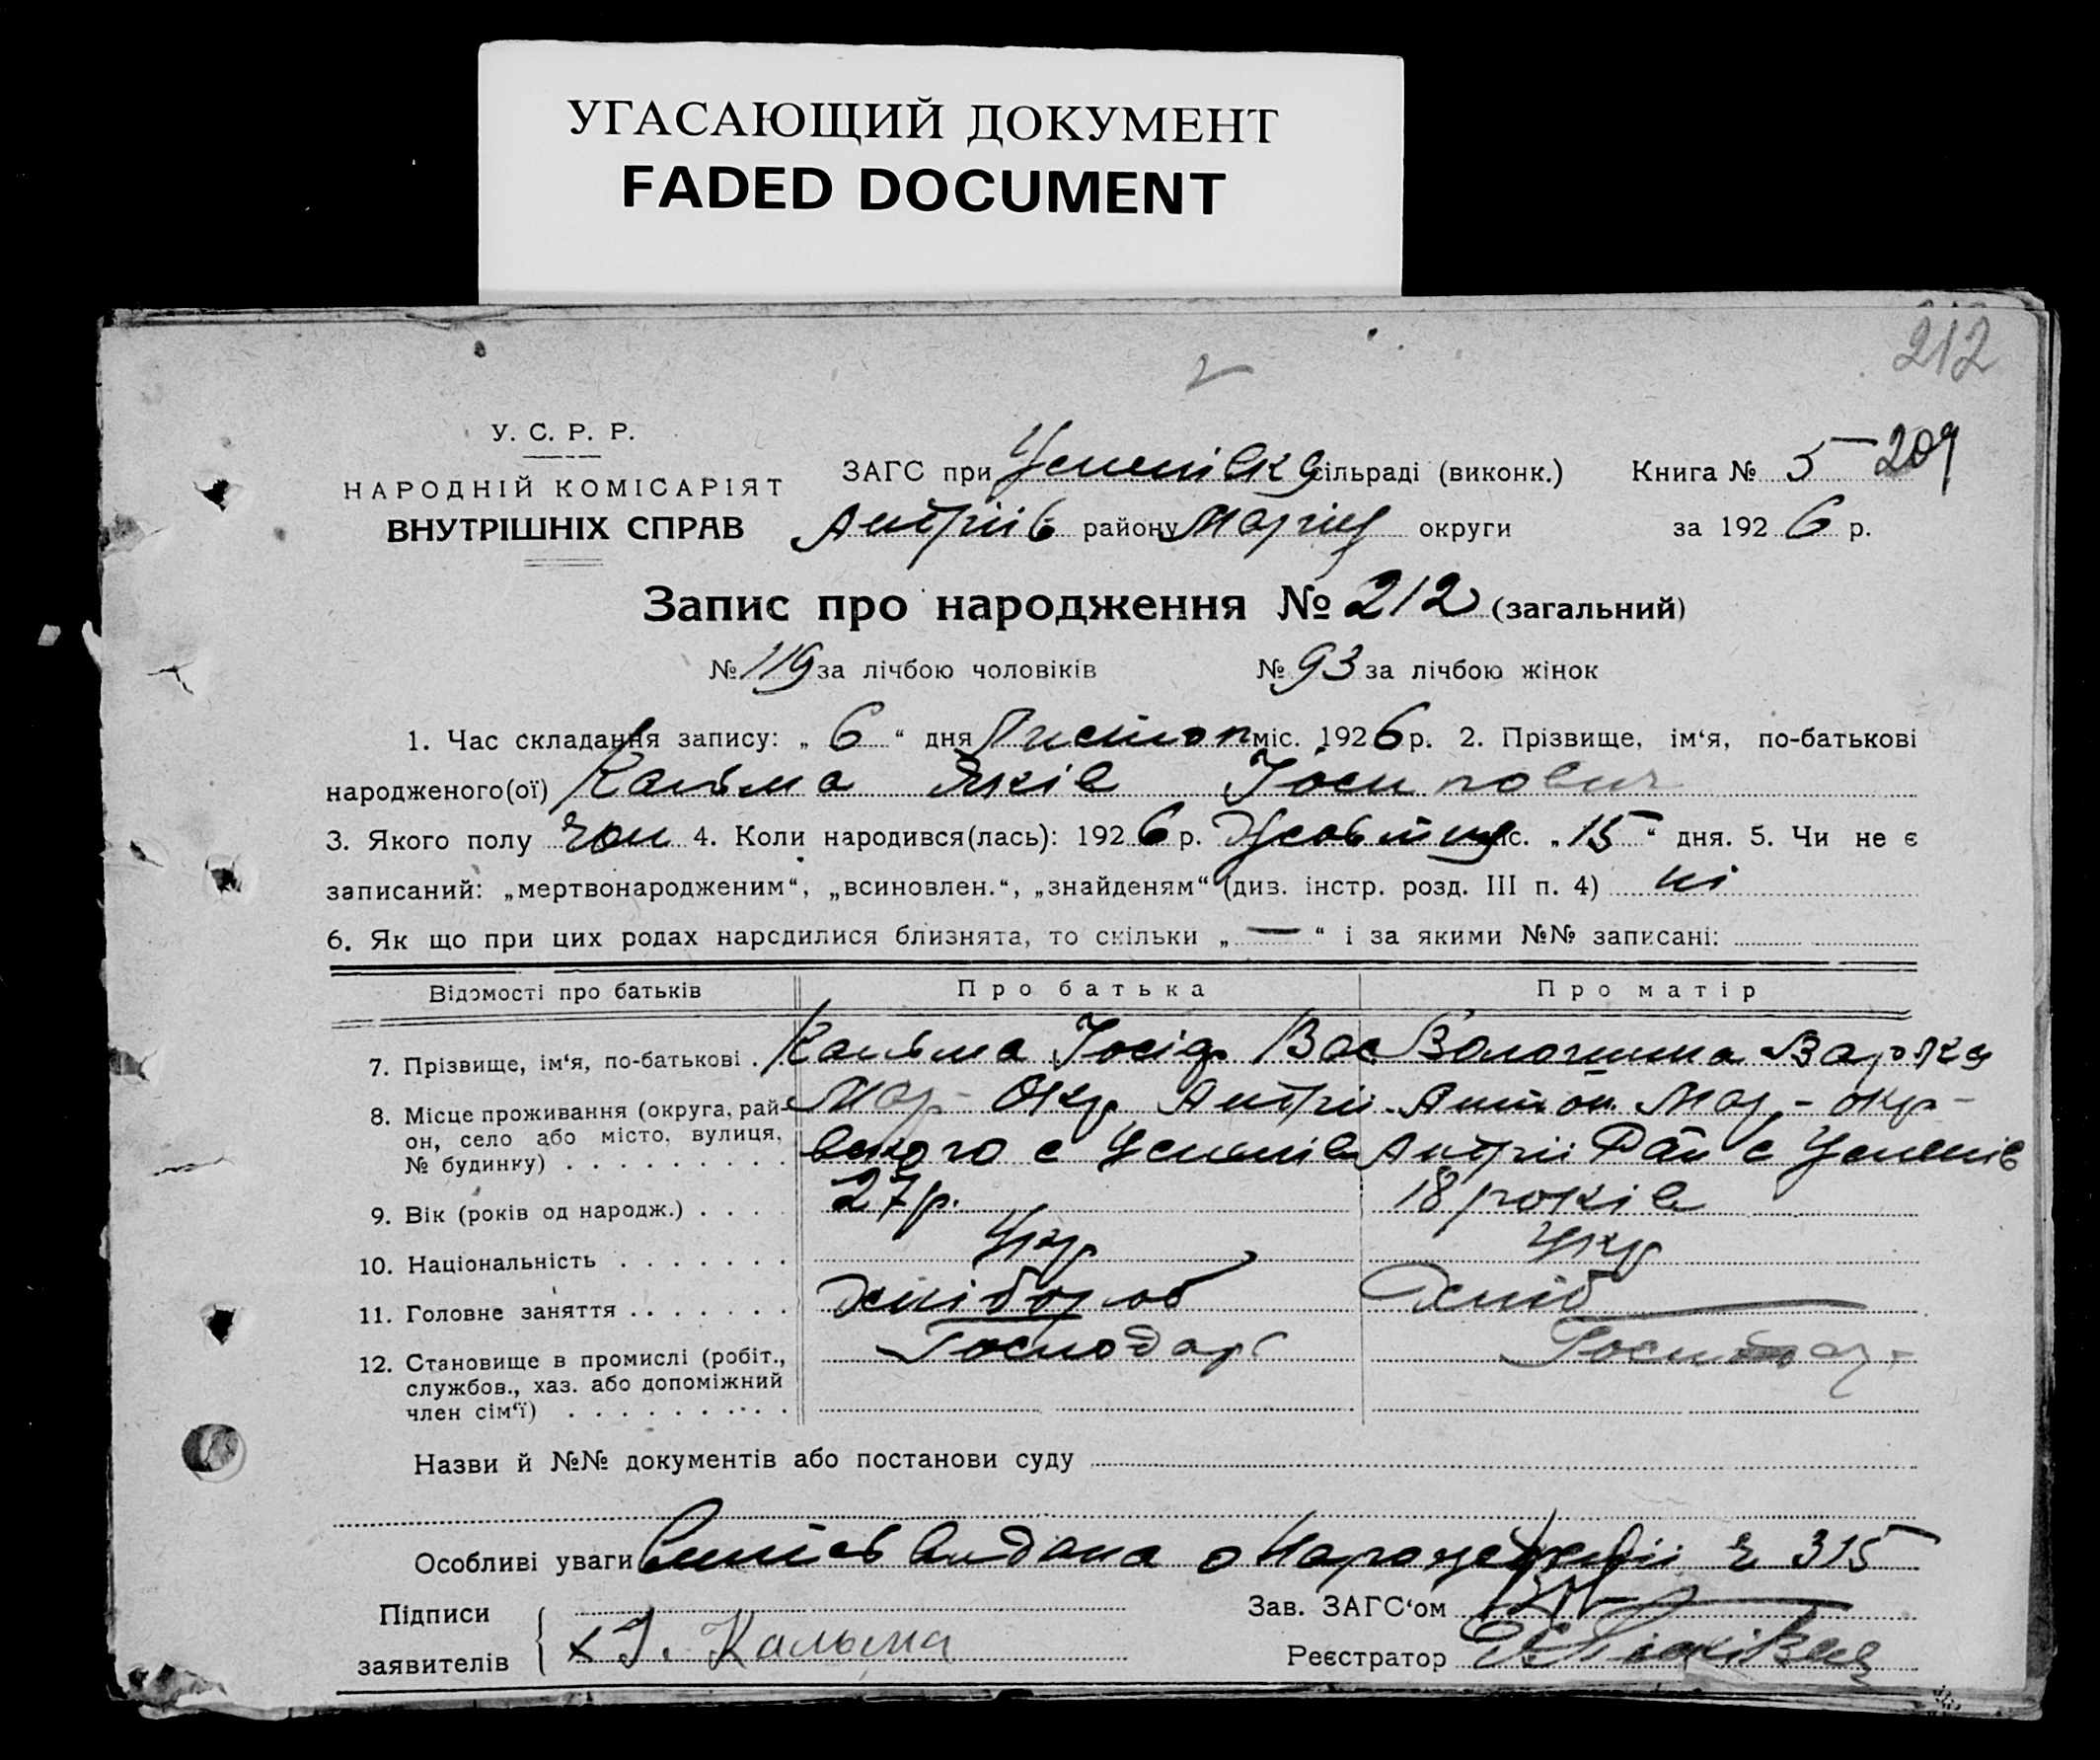 УГАСАЮЩИЙ ДОКУМЕНТ
FADED DOCUMENT
212
У. С. Р. Р.
НАРОДНІЙ КОМІСАРІЯТ
ВНУТРІШНІХ СПРАВ
ЗАГС при Успенівку сільраді (виконк.) Книга № 5 209
Антрів району Маріуп округи за 1926 р.
Запис про народження № 212 (загальний)
№ 119 за лічбою чоловіків № 93 за лічбою жінок
1. Час складання запису: „ 6 “ дня Листоп міс. 1926 р. 2. Прізвище, ім‘я, по-батькові
народженого(ої) Кальма Яків Іосипович
3. Якого полу чол 4. Коли народився(лась): 1926 р. Жовтня міс. „ 15 “ дня. 5. Чи не є
записаний: „мертвонародженим“, „всиновлен.“, „знайденям“ (див. інстр. розд. III п. 4) ні
6. Як що при цих родах народилися близнята, то скільки „ — “ і за якими №№ записані:
Відомості про батьків Про батька Про матір
7. Прізвище, ім‘я, по-батькові Кальма Іосіф Вас Волошина Варька
8. Місце проживання (округа, рай- Мар- Окр Антрі Антон. Мар,- окр-
он, село або місто, вулиця, вського с Успенів Антрії Рай с Успенів
№ будинку)
9. Вік (років од народж.) 27 р. 18 років
10. Національність Укр Укр
11. Головне заняття Хлібороб Хліб
12. Становище в промислі (робіт., Господар Господар
службов., хаз. або допоміжний
член сім‘ї)
Назви й №№ документів або постанови суду
Особливі уваги видана о 315
Підписи Зав. ЗАГС‘ом
заявителів х І. Кальма Реєстратор